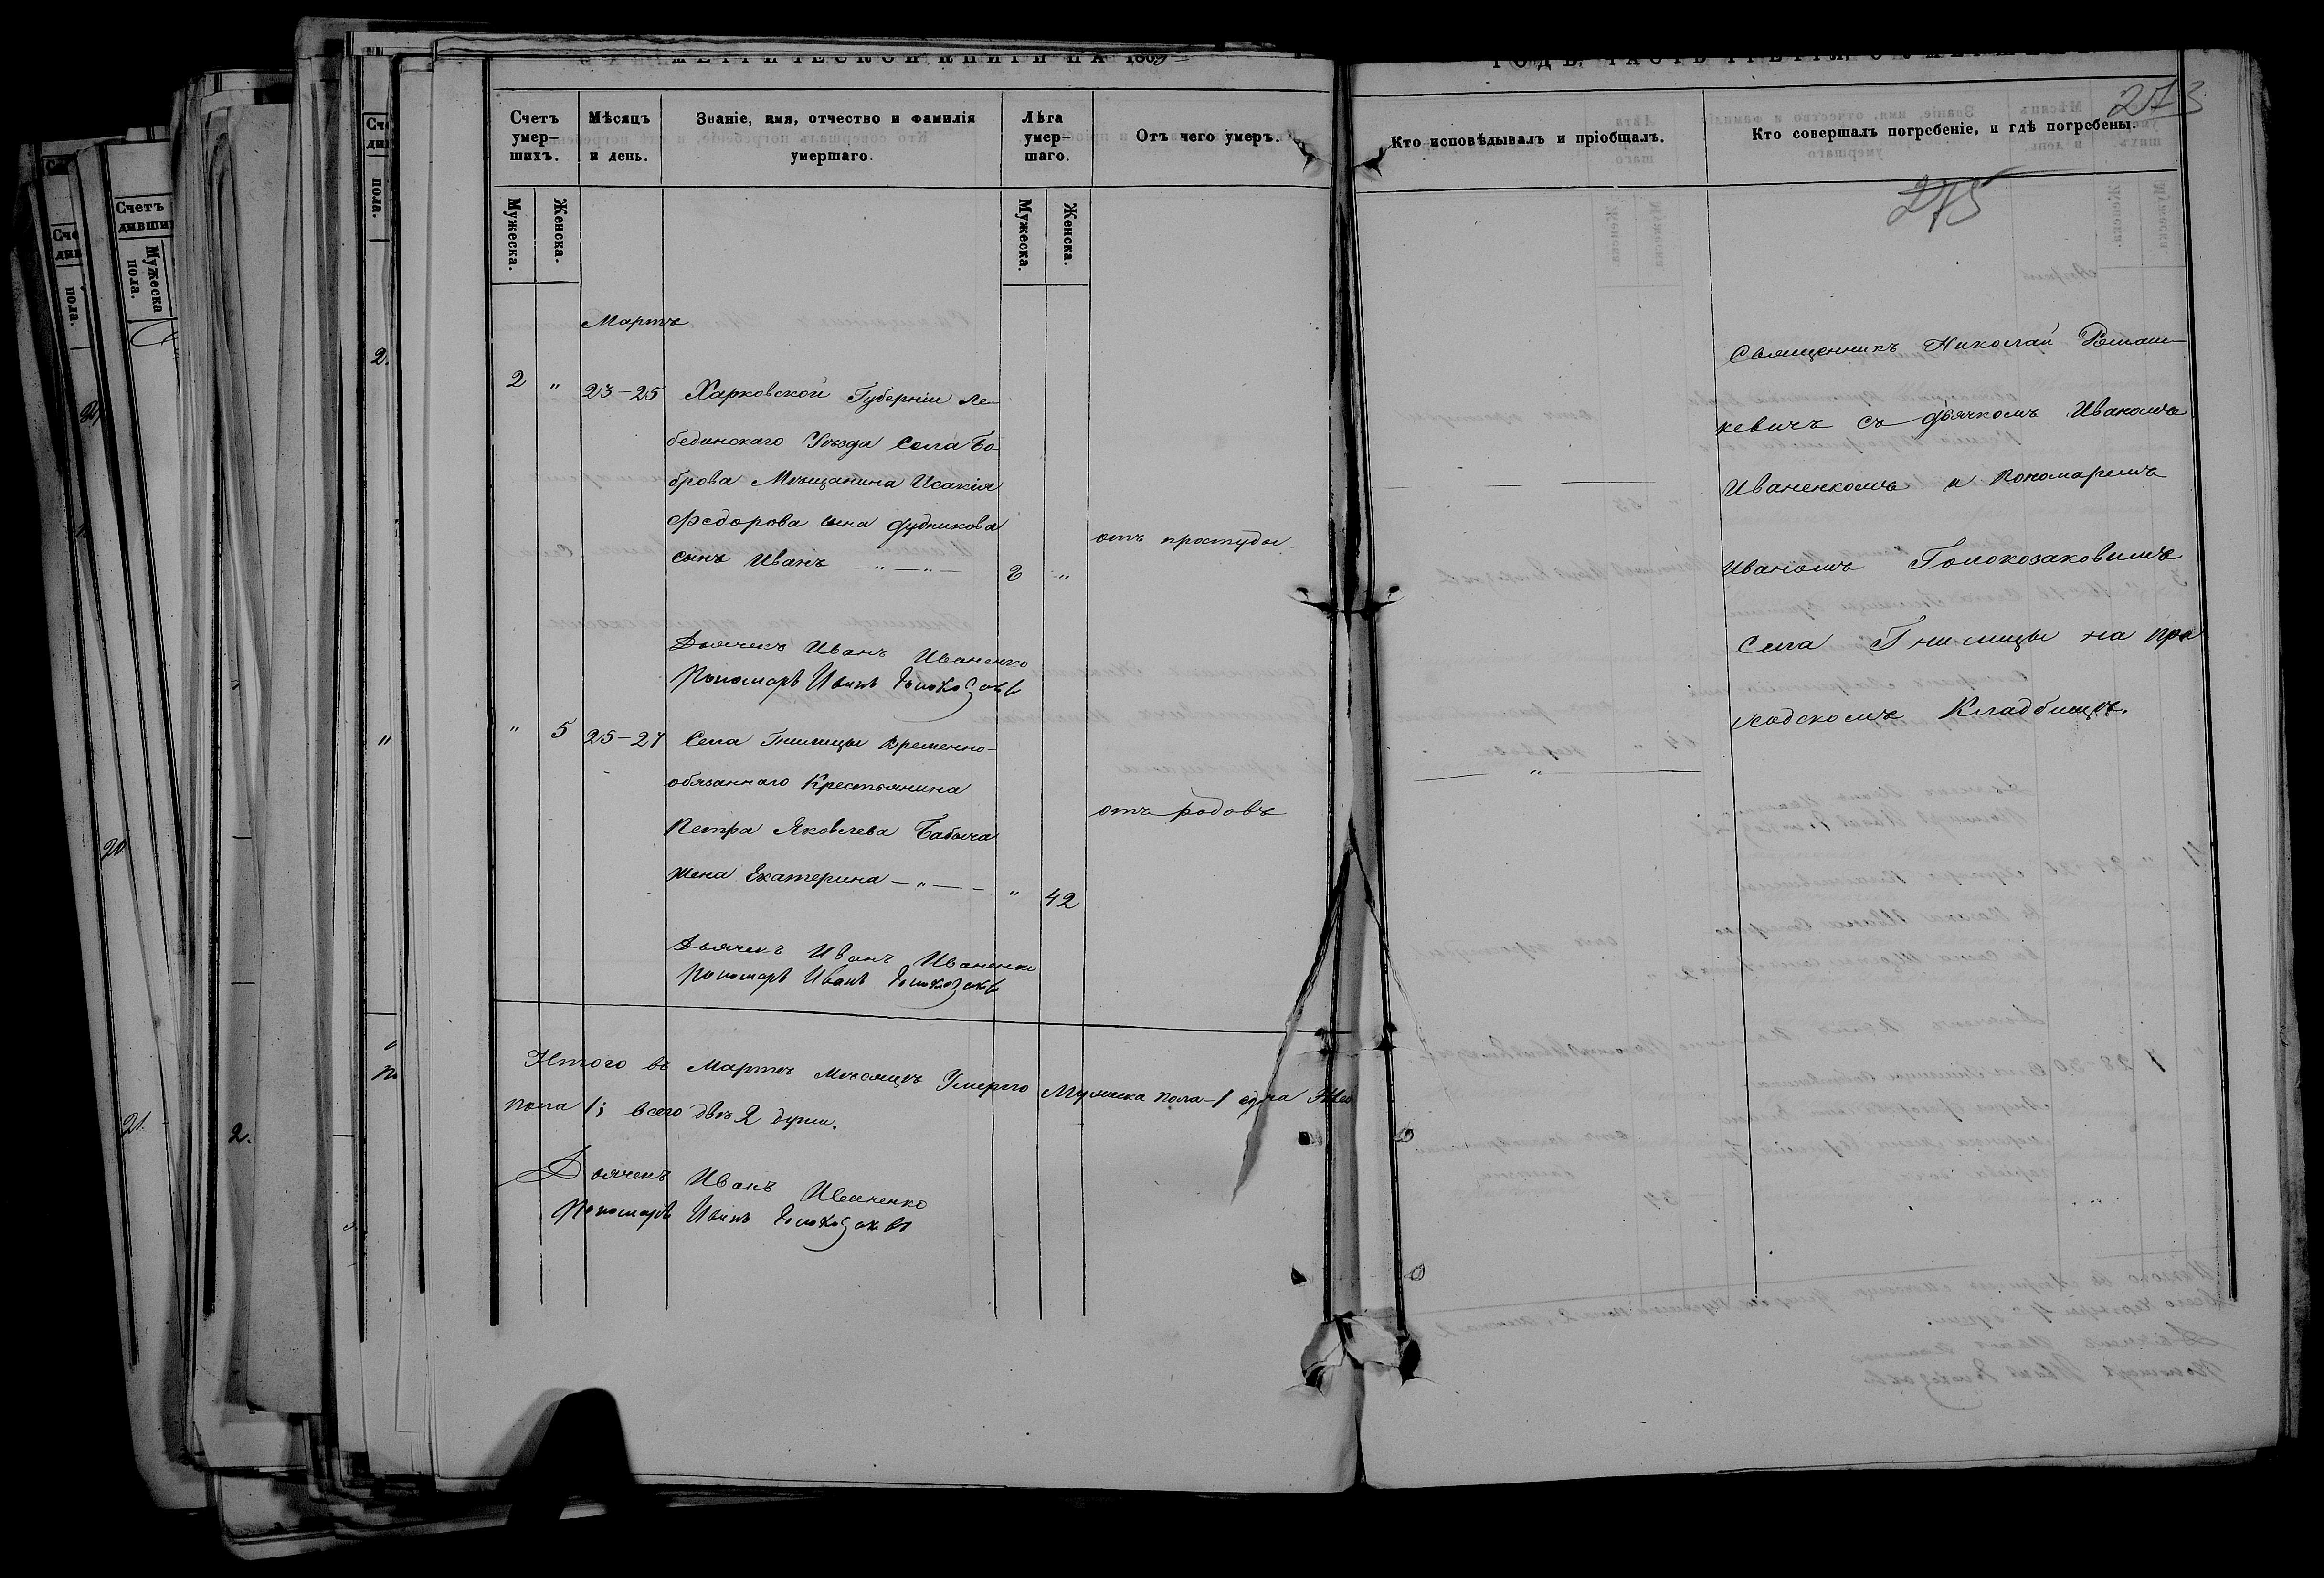 МЕТРИЧЕСКОЙ КНИГИ НА 1869
ГОДЪ, ЧАСТЬ ТРЕТІЯ, О УМЕРШИХЪ
273
275
Счетъ умер-шихъ.
Мѣсяцъ и день.
Званіе, имя, отчество и фамилія умершаго.
Лѣта умер-шаго.
Отъ чего умеръ.
Кто исповѣдывалъ и пріобщалъ.
Кто совершалъ погребеніе, и гдѣ погребены.
Мужеска.
Женска.
Мужеска.
Женска.
Мартъ
2 " 23-25 Харковской Губерніи Ле-
бединскаго Уѣзда Села Бо-
брова Мѣщанина Исакія
Федорова сына Дудникова
сынъ Иванъ — " — " — 2 "
отъ простуды
Дьячекъ Иванъ Иваненко
Пономарь Иванъ Голоказаковъ
" 5 25-27 Села Гнилицы временно-
обязаннаго Крестьянина
Петра Яковлева Бабича
жена Екатерина — " — - " 42
отъ родовъ
Дьячекъ Иванъ Иваненко
Пономарь Иванъ Голоказаковъ
Итого въ Мартѣ Мѣсяцѣ Умерло Мужеска пола - 1 одна
пола 1; всего двѣ 2 души.
Дьячекъ Иванъ Иваненко
Пономарь Иванъ Голоказаковъ
Священникъ Николай Ромаш-
кевичъ съ Дьячкомъ Иваномъ
Иваненкомъ и Пономаремъ
Иваномъ Голокозаковымъ
Села Гнилицы на при
ходскомъ Кладбищѣ.